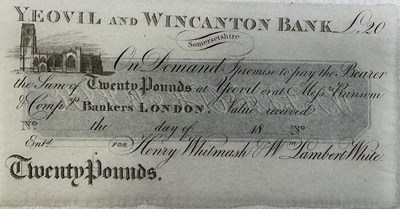 YEOVIL AND WINCANTON BANK £20
Somersetshire
On Demand I promise to pay the Bearer
the Sum of Twenty Pounds at Yeovil or at Messrs. Ransom
& Compys. Bankers LONDON. Value received
No the day of 18 No
Entd. FOR Henry Whitmash & Wm. Lambert White
Twenty Pounds.